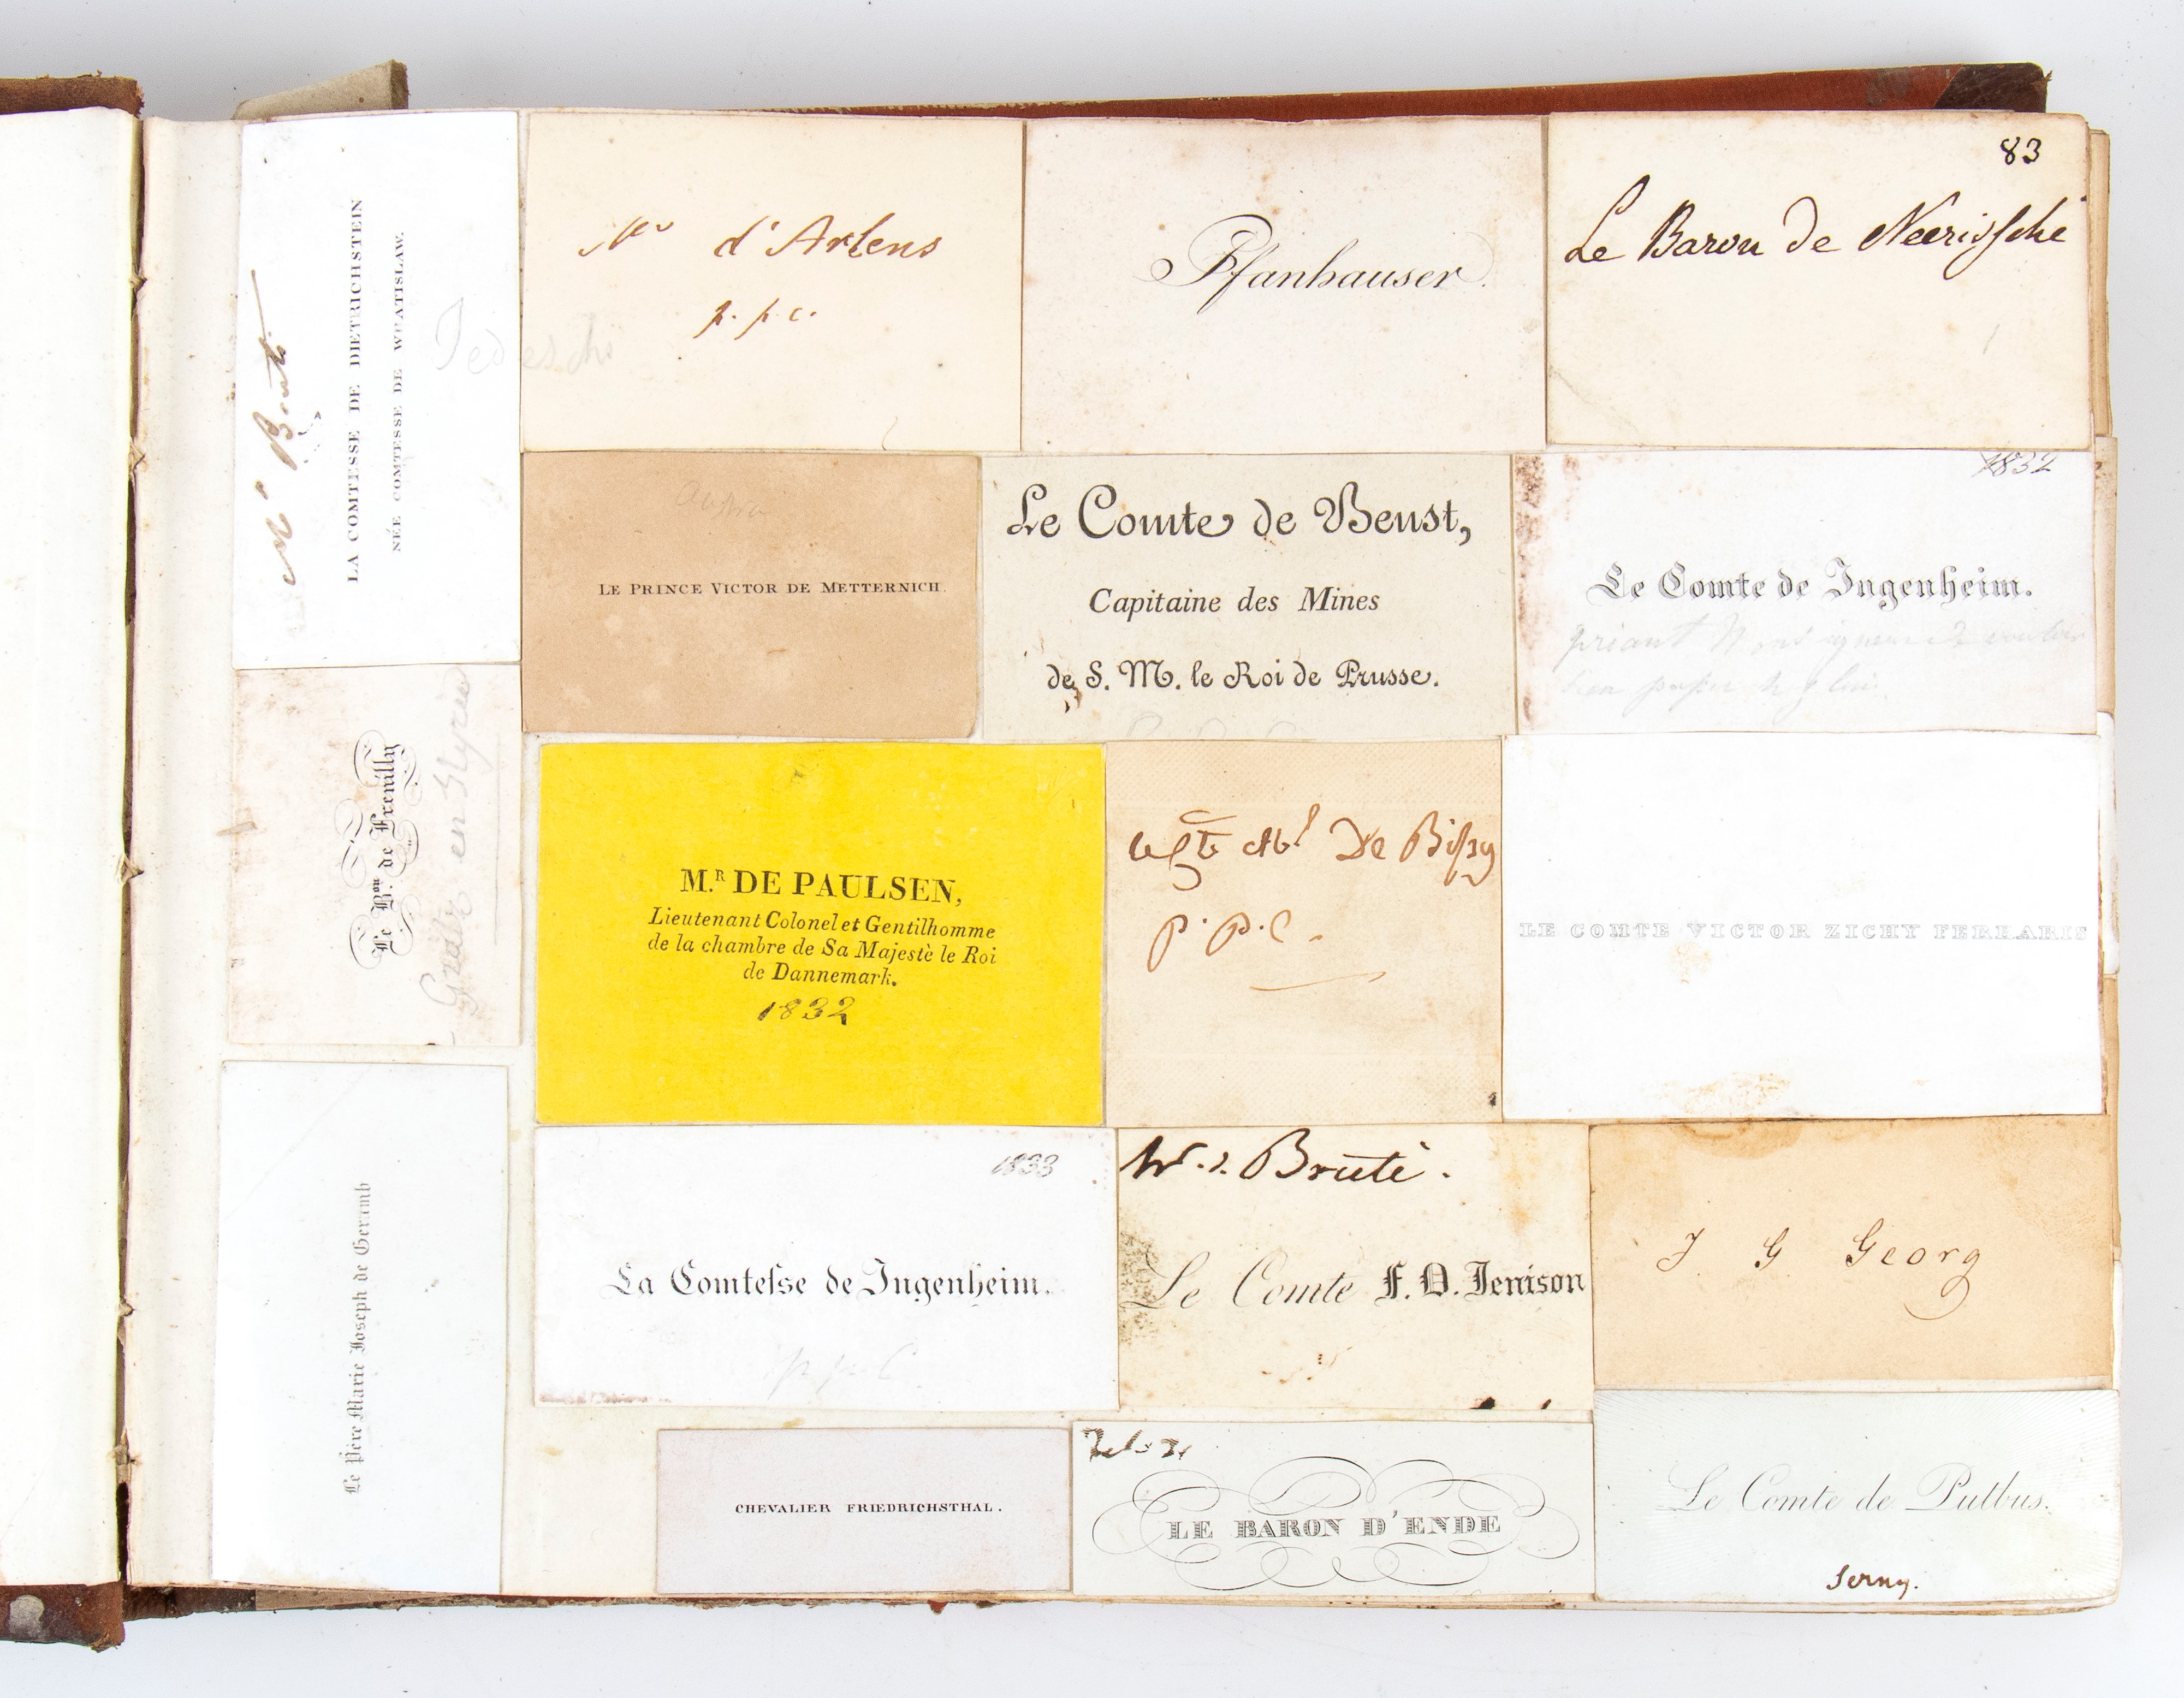 LA COMTESSE DE DIETRICHSTEIN
NÉE COMTESSE DE WRATISLAW.
Tedeschi
d'Arlens
p. p. c.
Pfanhauser.
83
Le Baron de Neerissche
Austria
LE PRINCE VICTOR DE METTERNICH.
Le Comte de Beust,
Capitaine des Mines
de S. M. le Roi de Prusse.
1832
Le Comte de Ingenheim.
priant
Le Bon. de Frenilly
Gratz en Styrie
M.R DE PAULSEN,
Lieutenant Colonel et Gentilhomme
de la chambre de Sa Majestè le Roi
de Dannemark.
1832
De Bissy
p. p. c.
LE COMTE VICTOR ZICHY FERRARIS
Le Père Marie Joseph de Geramb
1833
La Comtesse de Ingenheim.
p p c
Bruti.
Le Comte F. O. Jenison
J G Georg
CHEVALIER FRIEDRICHSTHAL.
LE BARON D'ENDE
Le Comte de Putbus.
Serny.